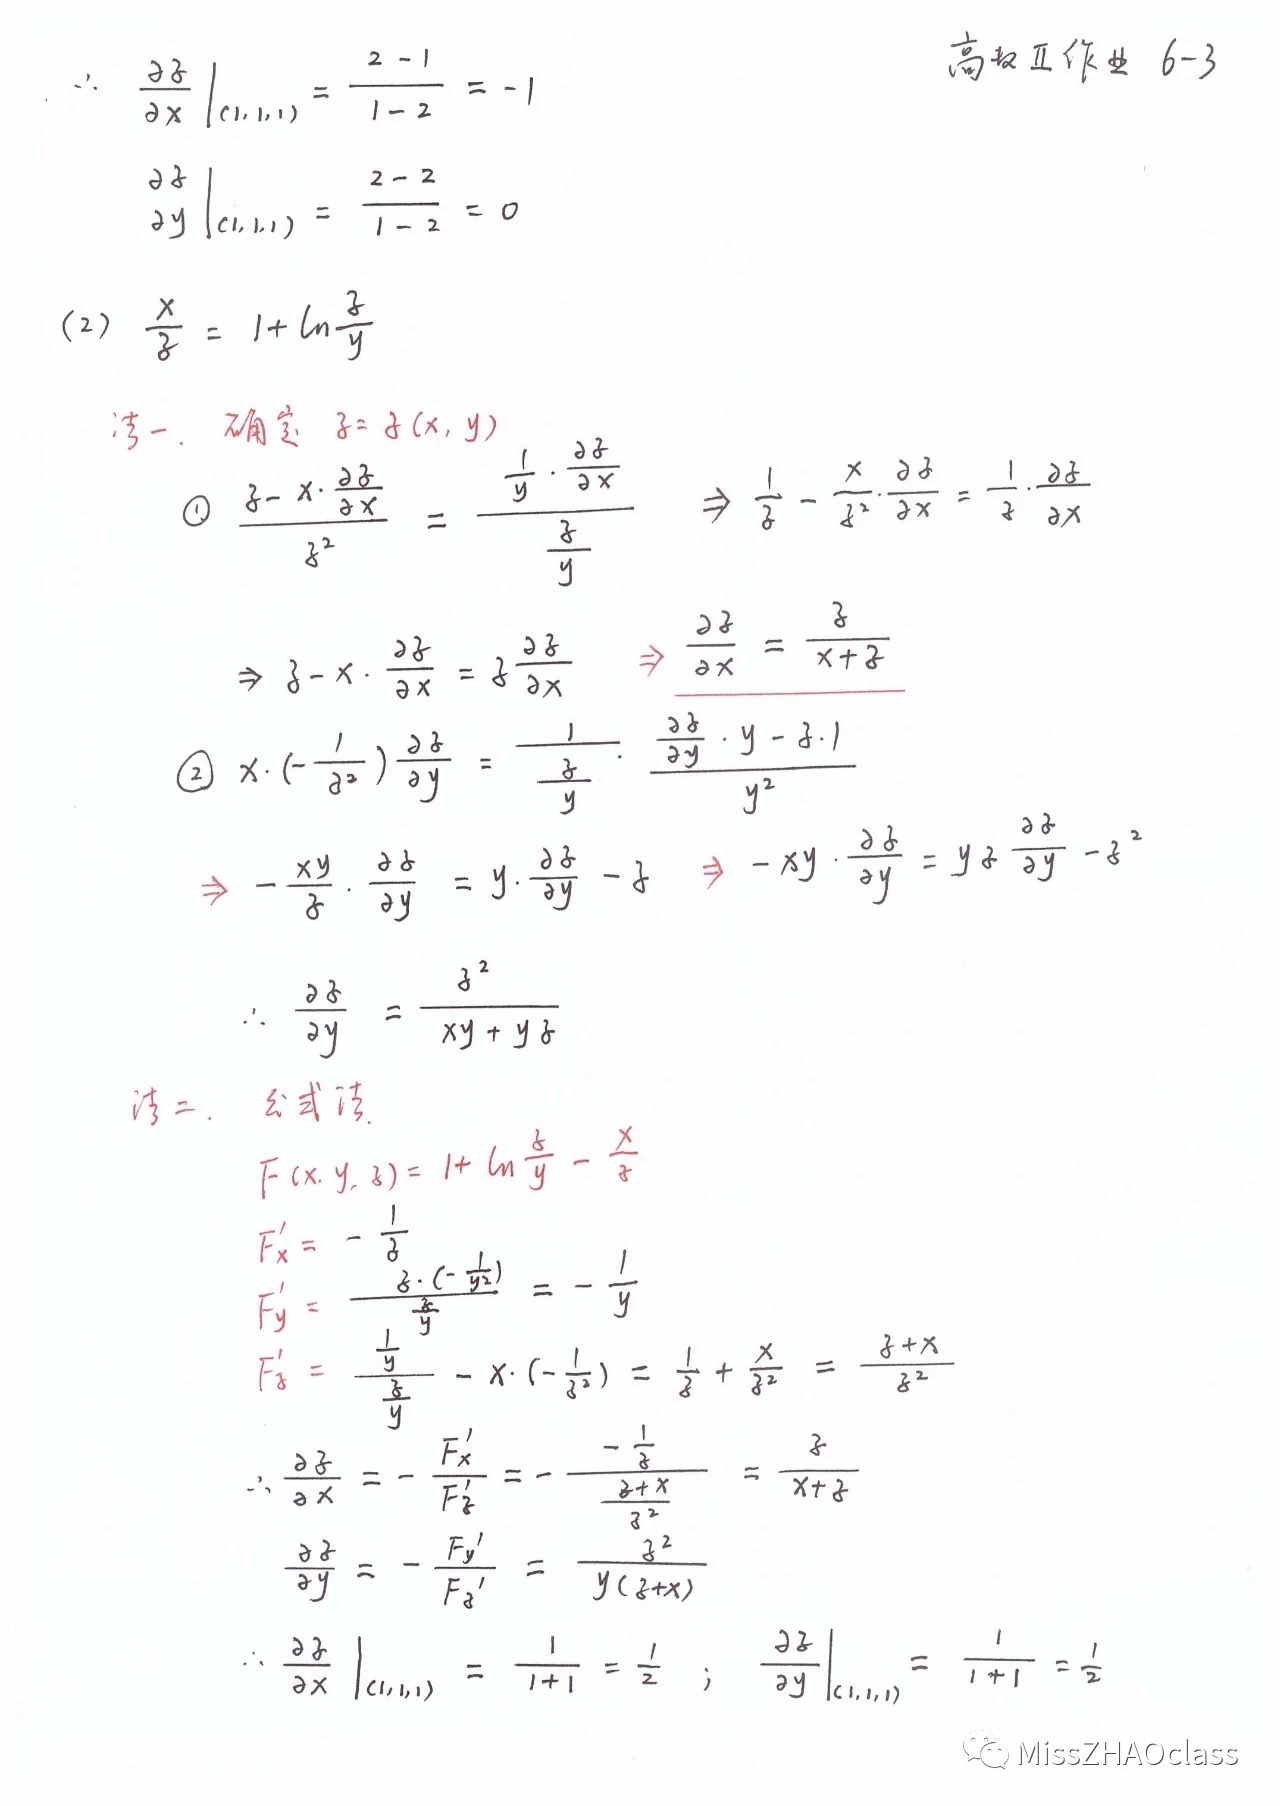 高数Ⅱ作业 6-3
∴ ∂z/∂x |(1,1,1) = (2-1)/(1-2) = -1
∂z/∂y |(1,1,1) = (2-2)/(1-2) = 0
(2) x/z = 1+ln z/y
法一. 确定 z=z(x,y)
① (z-x·∂z/∂x)/z² = (1/y·∂z/∂x)/(z/y) ⇒ 1/z - x/z²·∂z/∂x = 1/z·∂z/∂x
⇒ z-x·∂z/∂x = z ∂z/∂x ⇒ ∂z/∂x = z/(x+z)
② x·(-1/z²) ∂z/∂y = 1/(z/y) · (∂z/∂y·y-z·1)/y²
⇒ -xy/z·∂z/∂y = y·∂z/∂y - z ⇒ -xy·∂z/∂y = yz ∂z/∂y - z²
∴ ∂z/∂y = z²/(xy+yz)
法二. 公式法.
F(x.y,z)= 1+ ln z/y - x/z
F'x = -1/z
F'y = (z·(-1/y²))/(z/y) = -1/y
F'z = (1/y)/(z/y) - x·(-1/z²) = 1/z + x/z² = (z+x)/z²
∴ ∂z/∂x = -F'x/F'z = -(-1/z)/((z+x)/z²) = z/(x+z)
∂z/∂y = -Fy'/Fz' = z²/(y(z+x))
∴ ∂z/∂x |(1,1,1) = 1/(1+1) = 1/2 ; ∂z/∂y |(1,1,1) = 1/(1+1) = 1/2
MissZHAOclass